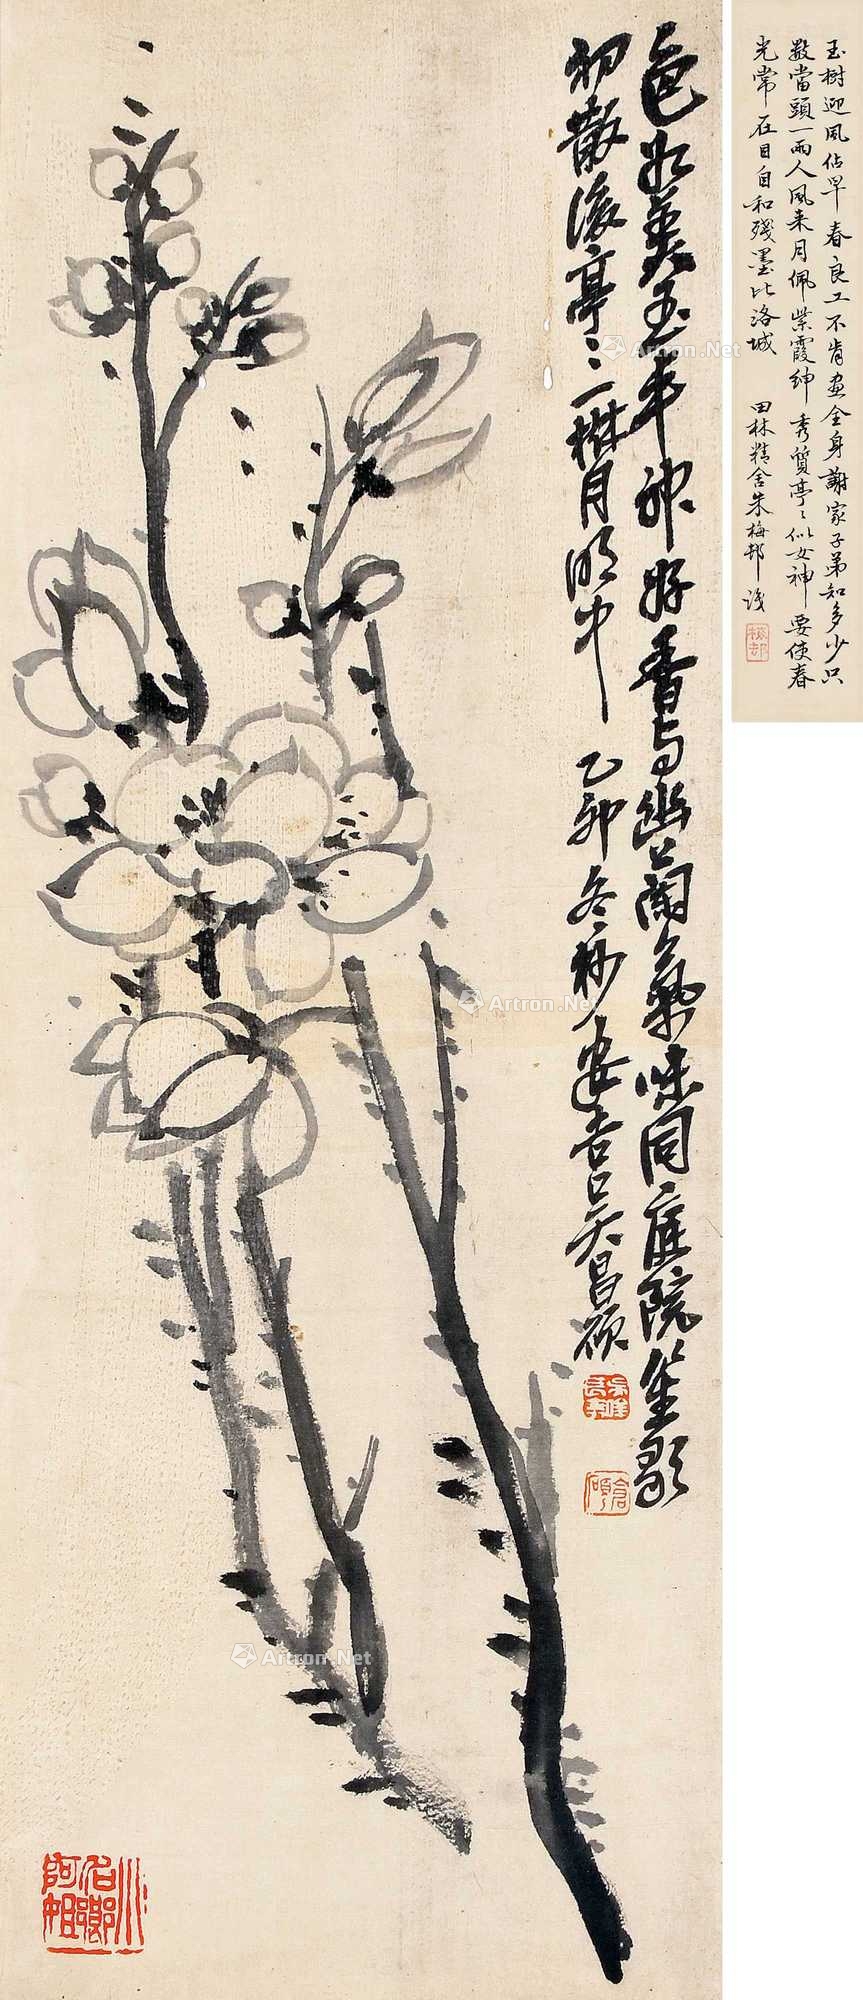 色如美玉年神好香与幽兰气味同庭院笙歌
初散後亭〻一樹月明中 乙卯冬杪安吉吴昌碩
玉樹迎風佔早春良工不肯画全身謝家子弟知多少只
數當頭一兩人風来月佩紫霞紳秀質亭〻似女神要使春
光常在目自和殘墨比洛城 田林精舍朱梅邨識
梅邨
倉碩
Artron.Net
Artron.Net
Artron.Net
Artron.Net